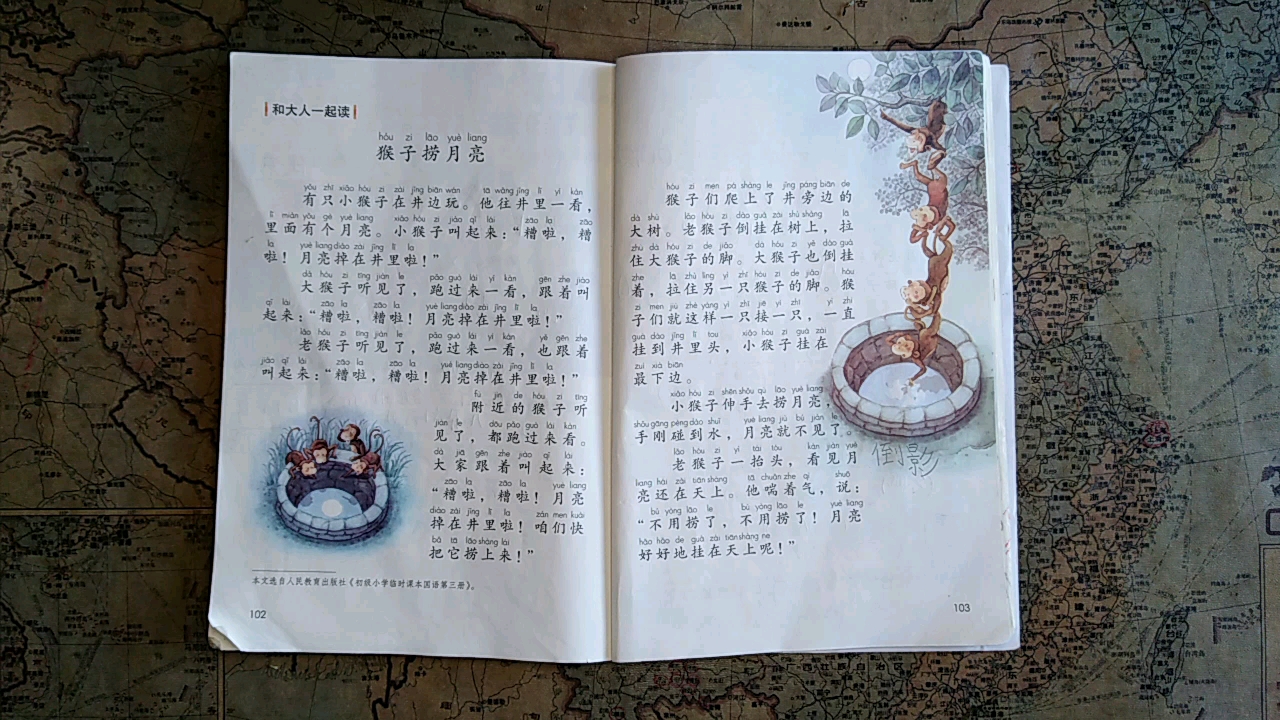 和大人一起读
hóu zi lāo yuè liang
猴子捞月亮
yǒu zhī xiǎo hóu zi zài jǐng biān wán tā wǎng jǐng lǐ yí kàn
有只小猴子在井边玩。他往井里一看，
lǐ miàn yǒu gè yuè liang xiǎo hóu zi jiào qǐ lái zāo la zāo
里面有个月亮。小猴子叫起来：“糟啦，糟
la yuè liang diào zài jǐng lǐ la
啦！月亮掉在井里啦！”
dà hóu zi tīng jiàn le pǎo guò lái yí kàn gēn zhe jiào
大猴子听见了，跑过来一看，跟着叫
qǐ lái zāo la zāo la yuè liang diào zài jǐng lǐ la
起来：“糟啦，糟啦！月亮掉在井里啦！”
lǎo hóu zi tīng jiàn le pǎo guò lái yí kàn yě gēn zhe
老猴子听见了，跑过来一看，也跟着
jiào qǐ lái zāo la zāo la yuè liang diào zài jǐng lǐ la
叫起来：“糟啦，糟啦！月亮掉在井里啦！”
fù jìn de hóu zi tīng
附近的猴子听
jiàn le dōu pǎo guò lái kàn
见了，都跑过来看。
dà jiā gēn zhe jiào qǐ lái
大家跟着叫起来：
zāo la zāo la yuè liang
“糟啦，糟啦！月亮
diào zài jǐng lǐ la zán men kuài
掉在井里啦！咱们快
bǎ tā lāo shàng lái
把它捞上来！”
本文选自人民教育出版社《初级小学临时课本国语第三册》。
102
hóu zi men pá shàng le jǐng páng biān de
猴子们爬上了井旁边的
dà shù lǎo hóu zi dào guà zài shù shàng lā
大树。老猴子倒挂在树上，拉
zhù dà hóu zi de jiǎo dà hóu zi yě dào guà
住大猴子的脚。大猴子也倒挂
zhe lā zhù lìng yì zhī hóu zi de jiǎo hóu
着，拉住另一只猴子的脚。猴
zi men jiù zhè yàng yì zhī jiē yì zhī yì zhí
子们就这样一只接一只，一直
guà dào jǐng lǐ tou xiǎo hóu zi guà zài
挂到井里头，小猴子挂在
zuì xià biān
最下边。
xiǎo hóu zi shēn shǒu qù lāo yuè liang
小猴子伸手去捞月亮，
shǒu gāng pèng dào shuǐ yuè liang jiù bú jiàn le
手刚碰到水，月亮就不见了。
lǎo hóu zi yì tái tóu kàn jiàn yuè
老猴子一抬头，看见月
liang hái zài tiān shàng tā chuǎn zhe qì shuō
亮还在天上。他喘着气，说：
bú yòng lāo le bú yòng lāo le yuè liang
“不用捞了，不用捞了！月亮
hǎo hǎo de guà zài tiān shàng ne
好好地挂在天上呢！”
倒影
103